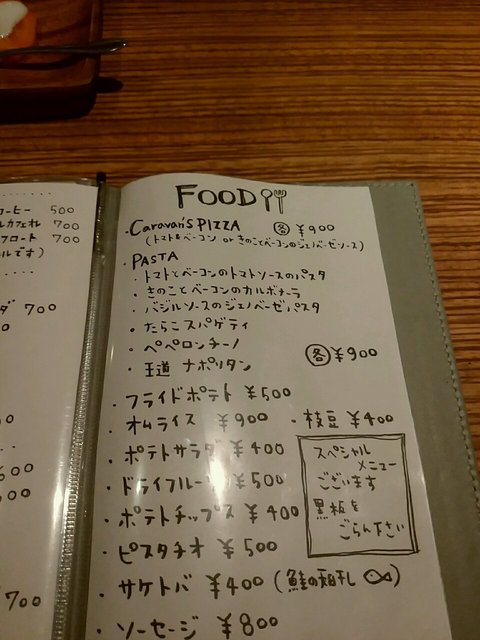 コーヒー 500
ルカフェオレ 700
フロート 700
ルです)
700
700
FOOD
・Caravan's PIZZA 各 ¥900
(トマト&ベーコン or きのことベーコンのジェノベーゼソース)
・PASTA
・トマトとベーコンのトマトソースのパスタ
・きのことベーコンのカルボナーラ
・バジルソースのジェノベーゼパスタ
・たらこスパゲティ
・ペペロンチーノ
・王道 ナポリタン
各 ¥900
・フライドポテト ¥500
・オムライス ¥900
・枝豆 ¥400
・ポテトサラダ ¥400
・ドライフルーツ ¥500
・ポテトチップス ¥400
・ピスタチオ ¥500
・サケトバ ¥400 (鮭の短干し)
・ソーセージ ¥800
スペシャル
メニュー
ございます
黒板を
ごらん下さい